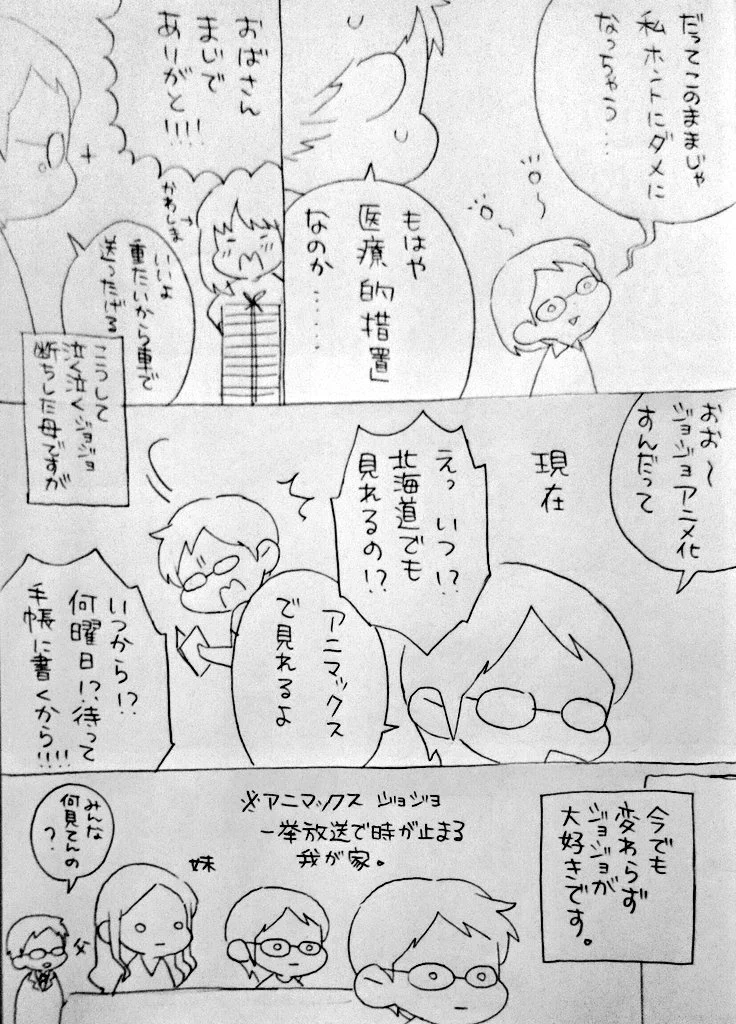 だってこのままじゃ
私ホントにダメに
なっちゃう・・・・
もはや
「医療的措置」
なのか・・・・・・
おばさん
まじで
ありがと!!!!
かわしま
いいよ
重たいから車で
送ったげる
こうして
泣く泣くジョジョ
断ちした母ですが
おお〜
ジョジョアニメ化
すんだって
現在
えっ いつ!?
北海道でも
見れるの!?
アニマックス
で見れるよ
いつから!?
何曜日!?待って
手帳に書くから!!!!
今でも
変わらず
ジョジョが
大好きです。
※アニマックス ジョジョ
一挙放送で時が止まる
我が家。
妹
みんな
何見てんの
?
父